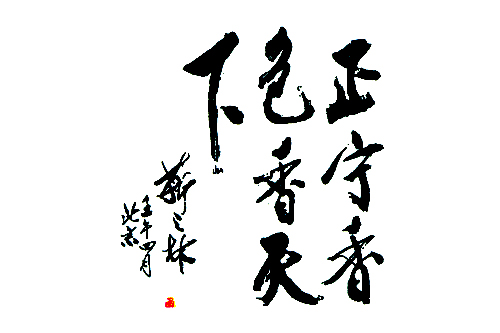 正宁香
包香天
下
靳之林
壬午四月
北京